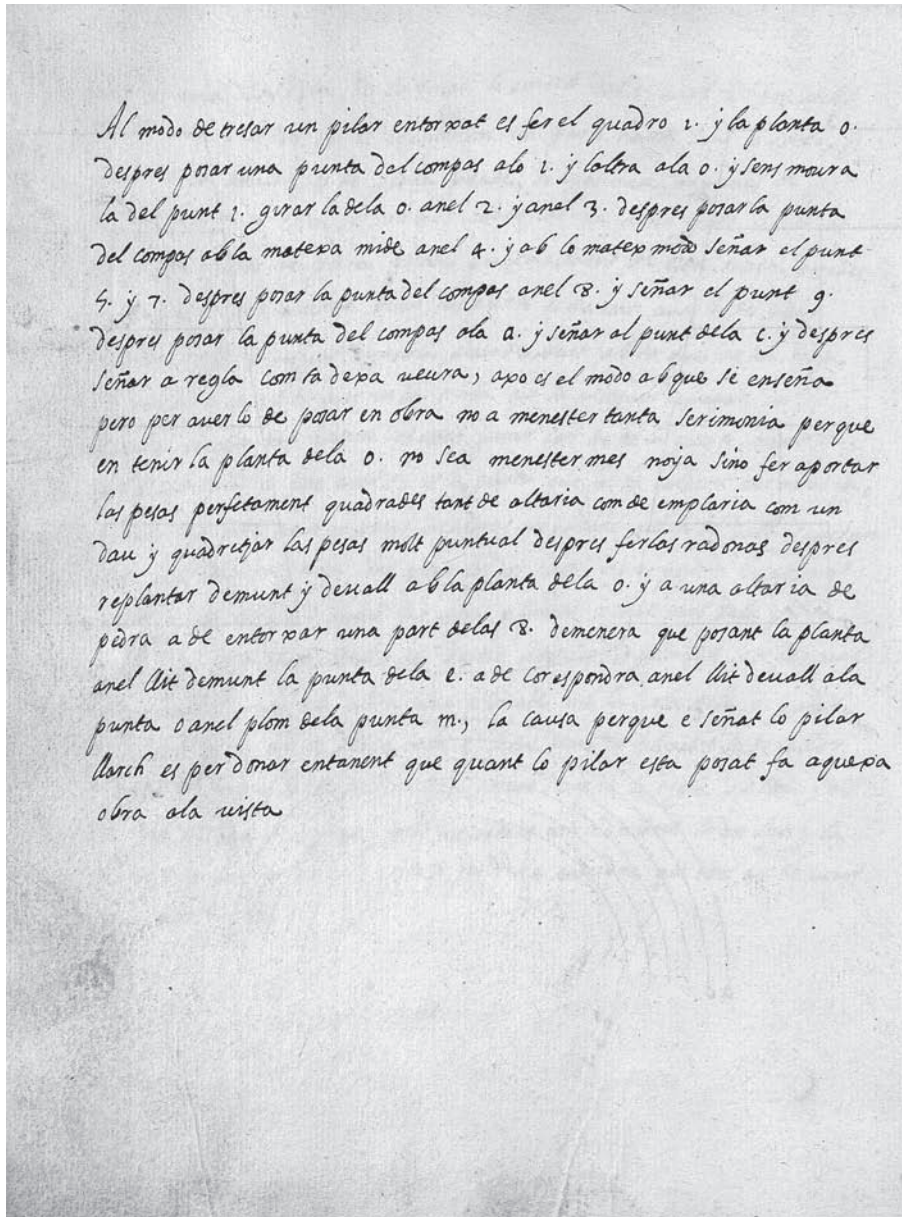 Al modo de tresar un pilar entorxat es fer el quadro 1. y la planta o.
despres posar una punta del compas alo 1. y laltra ala o. y sens moura
la del punt 1. girar la dela o. anel 2. y anel 3. despres posar la punta
del compas ab la matexa mide anel 4. y ab lo matex modo señar el punt
5. y 7. despres posar la punta del compas anel 8. y señar el punt 9.
despres posar la punta del compas ala a. y señar al punt dela c. y despres
señar a regla com ta dexa veura, axo es el modo ab que se enseña
pero per averlo de posar en obra no a menester tanta serimonia perque
en tenir la planta dela o. no sea menester mes noya sino fer aportar
las pesas perfetament quadrades tant de altaria com de emplaria com un
dau y quadretjar las pesas molt puntual despres ferlas radonas despres
replantar demunt y devall ab la planta dela o. y a una altaria de
pedra a de entorxar una part delas 8. demenera que posant la planta
anel llit demunt la punta dela e. a de corespondra anel llit devall ala
punta o anel plom dela punta m., la causa perque e señat lo pilar
llarch es per donar entanent que quant lo pilar esta posat fa aquexa
obra ala vista